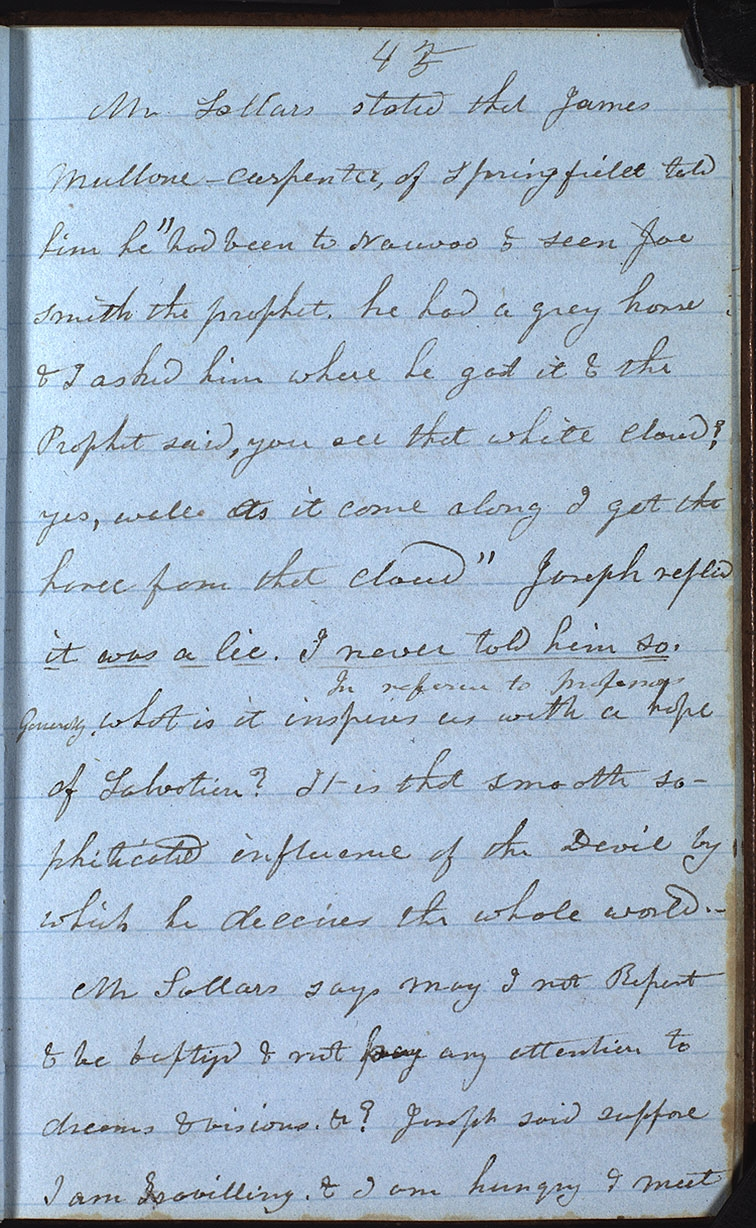 43
Mr Sollars stated that James
Mullone - carpenter, of Springfield told
him he "had been to Nauvoo & seen Joe
smith the prophet. he had a grey horse
& I asked him where he got it & the
Prophet said, you see that white cloud?
yes, well as it come along I got the
horse from that cloud" Joseph replid
it was a lie. I never told him so.
In referenc to professors
Generaly. what is it inspires us with a hope
of Salvation? It is that smooth so-
phiticated influence of the Devil by
which he deceives the whole world.-
Mr Sollars says may I not Repent
& be baptizd & not pay any attention to
dreams & visions. &? Joseph said suppose
I am travilling. & I am hungry & meet